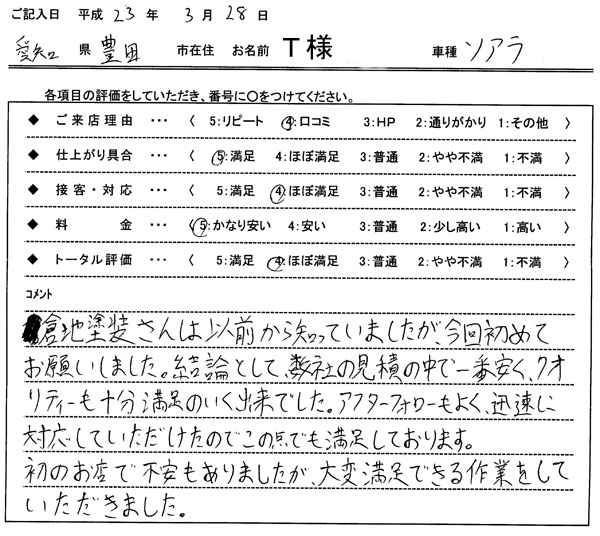 ご記入日 平成 23 年 3月 28 日
愛知 県 豊田 市在住 お名前 T様 車種 ソアラ
各項目の評価をしていただき、番号に○をつけてください。
◆ ご来店理由 ・・・ 〈 5:リピート ④:口コミ 3:HP 2:通りがかり 1:その他 〉
◆ 仕上がり具合 ・・・ 〈 ⑤:満足 4:ほぼ満足 3:普通 2:やや不満 1:不満 〉
◆ 接客・対応 ・・・ 〈 5:満足 ④:ほぼ満足 3:普通 2:やや不満 1:不満 〉
◆ 料金 ・・・ 〈 ⑤:かなり安い 4:安い 3:普通 2:少し高い 1:高い 〉
◆ トータル評価 ・・・ 〈 5:満足 ④:ほぼ満足 3:普通 2:やや不満 1:不満 〉
コメント
倉地塗装さんは以前から知っていましたが、今回初めて
お願いしました。結論として、数社の見積の中で一番安く、クオ
リティーも十分満足のいく出来でした。アフターフォローもよく、迅速に
対応していただけたのでこの点でも満足しております。
初のお店で不安もありましたが、大変満足できる作業をして
いただきました。